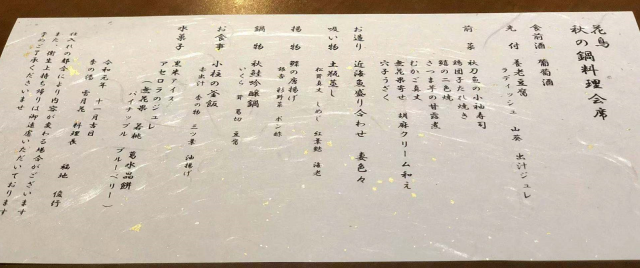 花鳥
秋の鍋料理会席
食前酒 葡萄酒
先付 養老豆腐
ラディッシュ 山葵 出汁ジュレ
前菜 秋刀魚の小袖寿司
鶏団子たれ焼き
鮭の二色焼き
さつま芋の甘露煮
むかご真丈
無花果寄せ 胡麻クリーム和え
穴子ざく
お造り 近海魚盛り合わせ 妻色々
吸い物 土瓶蒸し
松茸真丈 しめじ 紅葉麩 海老
揚物 鱈の唐揚げ
ポン酢
鍋物 秋鮭吟醸鍋
いくら 葛切 豆腐
お食事 小柱の釜飯
赤出汁 香の物 三つ葉 油揚げ
水菓子 黒米アイス
アセロラのジュレ 葛水晶餅
(無花果 パイナップル ブルーベリー)
令和元年 十一月吉日
季の湯 雪月花 料理長
福地 俊行
仕入れの都合により内容が変わる場合がございます
また、衛生上持ち帰りは御遠慮いただいております
予めご了承くださいませ